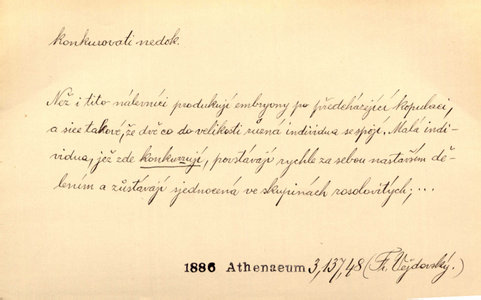 konkurovati nedok.
Než i tito nálevníci produkují embryony po předcházející kopulaci,
a sice takové, že dvě co do velikosti různá individua se spojí. Malá indi-
vidua, jež zde konkurují, povstávají rychle za sebou nastavším dě-
lením a zůstávají sjednocená ve skupinách rosolovitých; ...
1886 Athenaeum 3,137,48 (Fr. Vejdovský.)